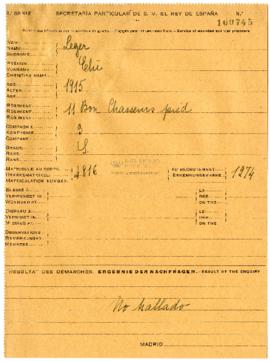 SECRETARIA PARTICULAR DE S. M. EL REY DE ESPAÑA
N.º
160745
NOM
NAME
Leger
PRÉNOM
VORNAME
CHRISTIAN NAME
Elie
AGE
ALTER
AGE
1915
RÉGIMENT
REGIMENT
REGIMENT
11 Bon Chasseurs pied
COMPAGNIE
KOMPAGNIE
COMPANY
3
GRADE
RANG
RANK
S
MATRICULE AU CORPS
4816
AU RECRUTEMENT
1274
MATRICULATION NUMBER
BLESSÉ À
VERWUNDET IN
WOUNDED AT
LE
DEN
ON THE
DISPARU À
VERMISST IN
MISSING AT
LE
DEN
ON THE
OBSERVATIONS
BEMERKUNGEN
REMARKS
RÉSULTAT DES DÉMARCHES. ERGEBNIS DER NACHFRAGEN. RESULT OF THE ENQUIRY
No hallado
MADRID